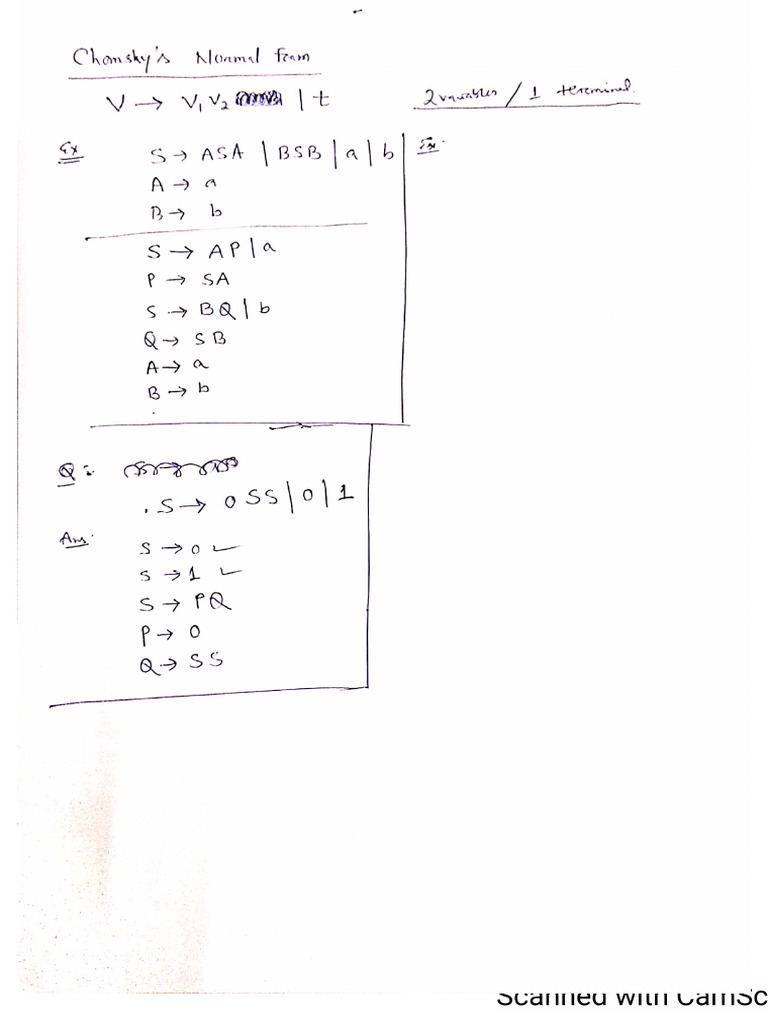 Chomsky's Normal Form
V → V₁ V₂ | t
2 variables / 1 terminal.
Ex
S → ASA | BSB | a | b
A → a
B → b
S → AP | a
P → SA
S → BQ | b
Q → SB
A → a
B → b
Ex.
Q:
. S → 0SS | 0 | 1
Ans.
S → 0 ✓
S → 1 ✓
S → PQ
P → 0
Q → SS
Scanned with CamSc